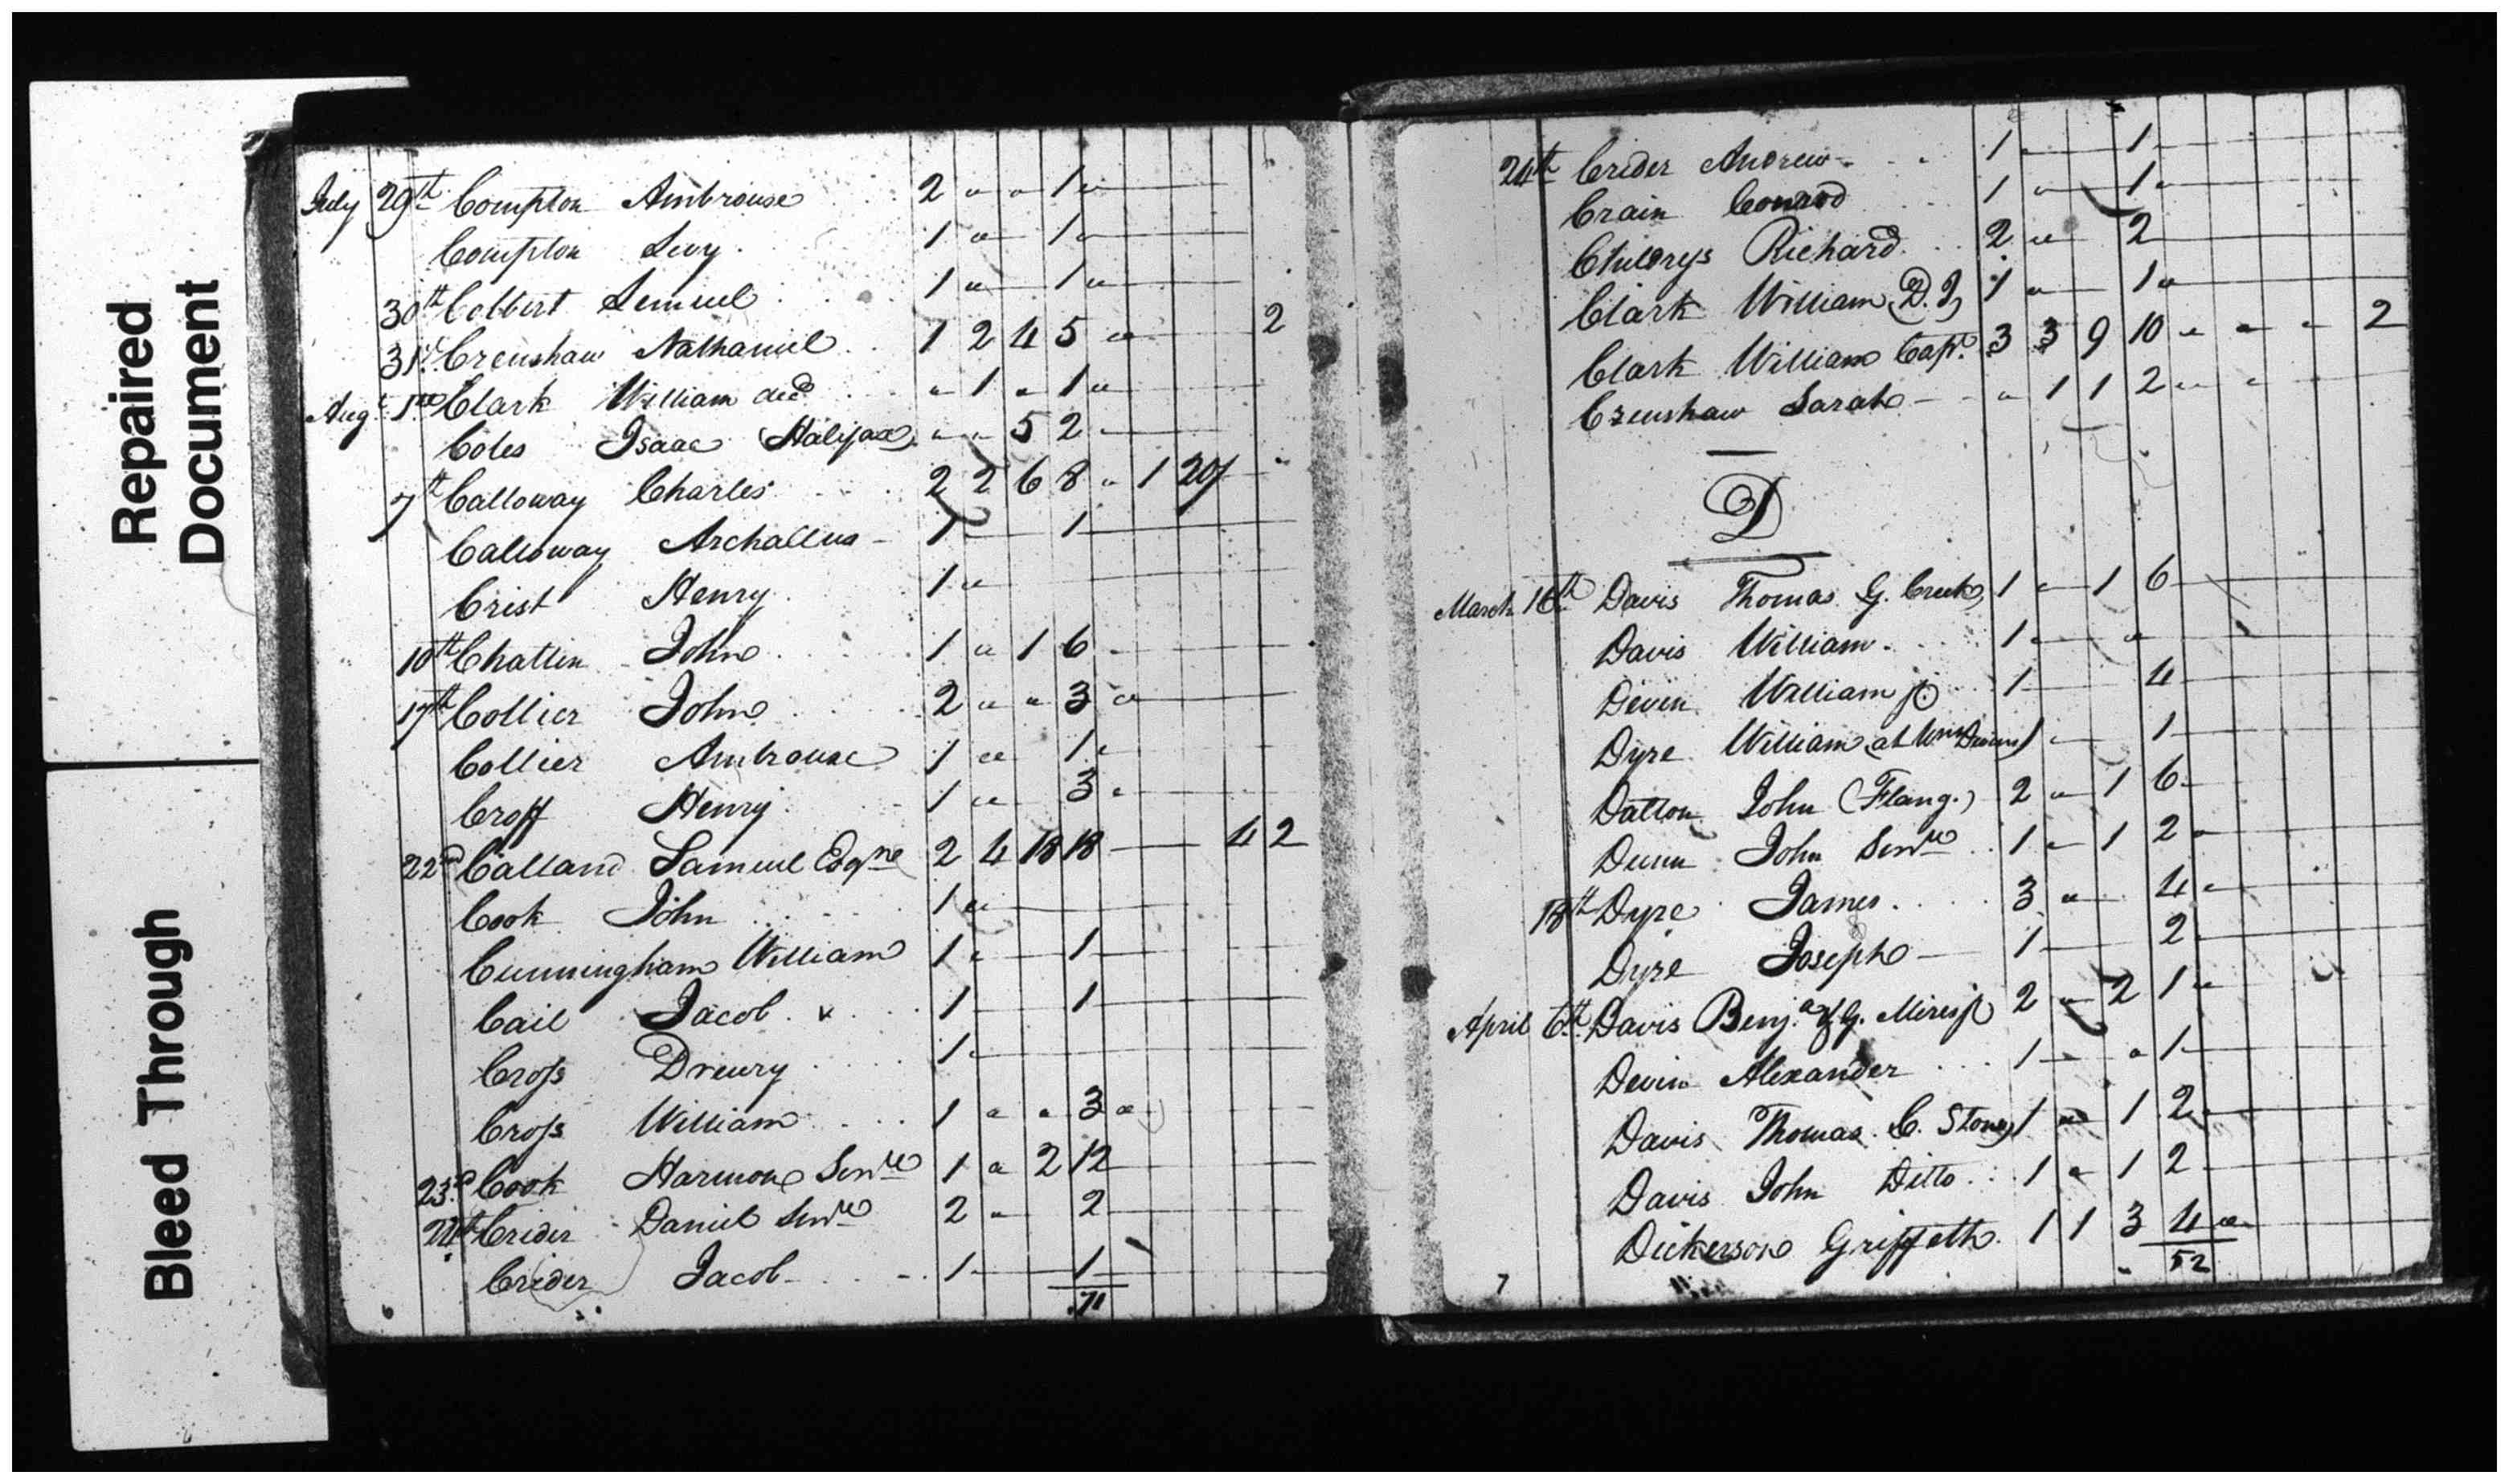 Repaired
Document
Bleed Through
July 29th Compton Ambrouse 2 " " 1 "
Compton Levy 1 " 1 "
30th Colbert Lemuel 1 " 1 "
31st Crenshaw Nathaniel 1 2 4 5 " 2
Augt 1st Clark William decd " 1 " 1 "
Coles Isaac (Halifax) " " 5 2
7th Calloway Charles 2 2 6 8 " 1 20/
Calloway Archallus 1 1
Crist Henry 1 "
10th Chattin John 1 " 1 6
17th Collier John 2 " " 3 "
Collier Ambrouse 1 " 1 "
Croff Henry 1 " 3 "
22nd Calland Samuel Esqre 2 4 18 18 4 2
Cook John 1 "
Cunningham William 1 " 1
Cail Jacob x 1 1
Cross Drewry 1
Cross William 1 " " 3 "
23rd Cook Harmon Senre 1 " 2 12
24th Crider Daniel Senre 2 " 2
Crider Jacob 1 1
71
6
24th Crider Andrew 1 1
Crain Conrod 1 " 1 "
Childrys Richard 2 " 2
Clark William (D. ) 1 " 1 "
Clark William Capt. 3 3 9 10 " " " 2
Crenshaw Sarah " 1 1 2 " "
D
March 16th Davis Thomas G. Creek 1 " 1 6
Davis William 1 " "
Devin William jr 1 4
Dyre William (at Wm Devins) 1 1
Dalton John (Flang.) 2 " 1 6
Dunn John Senre 1 " 1 2 "
18th Dyre James 3 " 4 "
Dyre Joseph 1 2
April 6th Davis Benja 2 " 2 1 "
Devin Alexander 1 " 1
Davis Thomas C. Stone 1 " 1 2
Davis John Ditto 1 " 1 2
Dickerson Griffeth 1 1 3 4 "
52
7